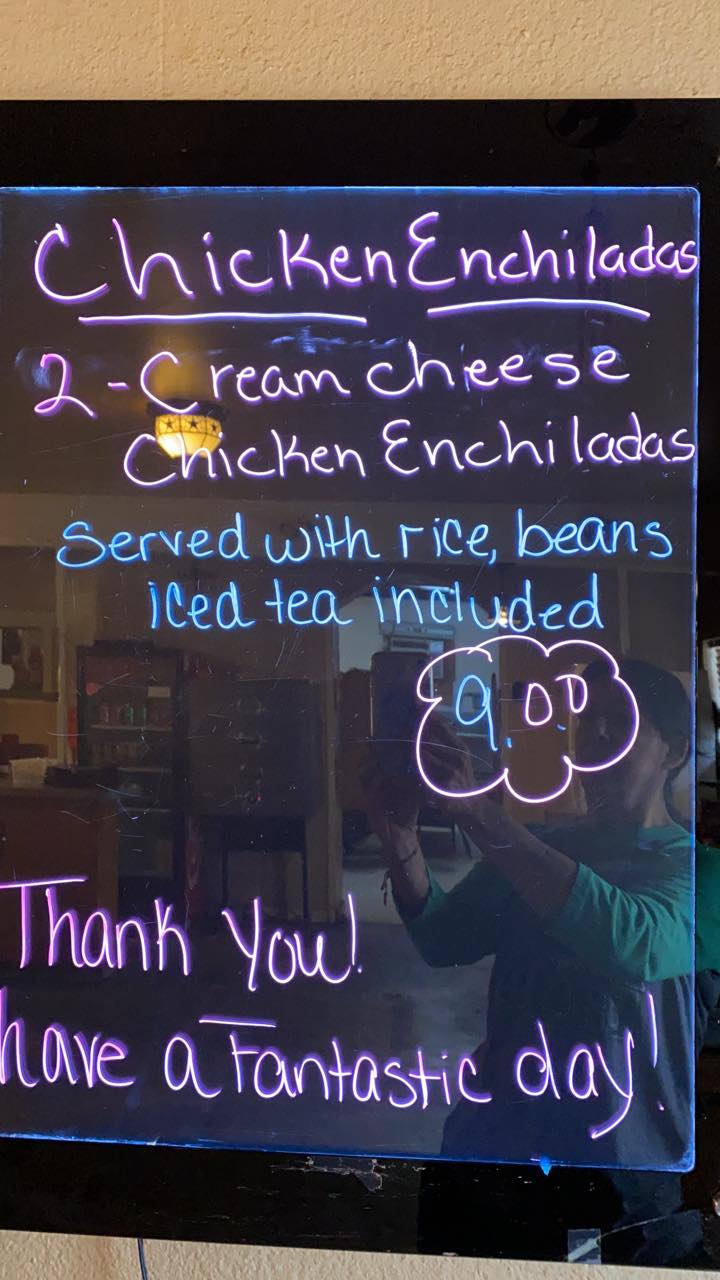 Chicken Enchiladas
2-Cream cheese
Chicken Enchiladas
Served with rice, beans
iced tea included
9.00
Thank You!
have a Fantastic day!